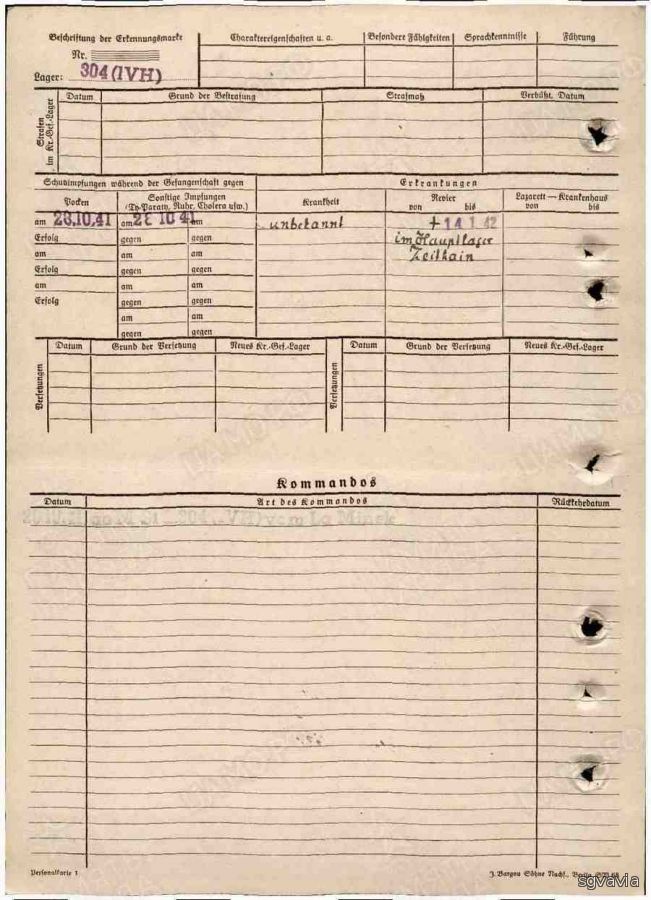 Beschriftung der Erkennungsmarke
Nr.
Lager: 304 (IVH)
Charaktereigenschaften u. a.
Besondere Fähigkeiten
Sprachkenntnisse
Führung
Strafen im Kr.-Gef.-Lager
Datum
Grund der Bestrafung
Strafmaß
Verbüßt, Datum
Schutzimpfungen während der Gefangenschaft gegen
Erkrankungen
Pocken
Sonstige Impfungen
(Ty.-Paraty., Ruhr, Cholera usw.)
Krankheit
Revier
von bis
Lazarett — Krankenhaus
von bis
am 28.10.41 am 28 10 41 am
unbekannt
+ 14 1 42
Erfolg gegen gegen
im Hauptlager
am am am
Zeithain
Erfolg gegen gegen
am am am
Erfolg gegen gegen
am am
gegen gegen
Versetzungen
Datum
Grund der Versetzung
Neues Kr.-Gef.-Lager
Versetzungen
Datum
Grund der Versetzung
Neues Kr.-Gef.-Lager
Kommandos
Datum
Art des Kommandos
Rückkehrdatum
Personalkarte 1
J. Bargou Söhne Nachf., Berlin
sgvavia